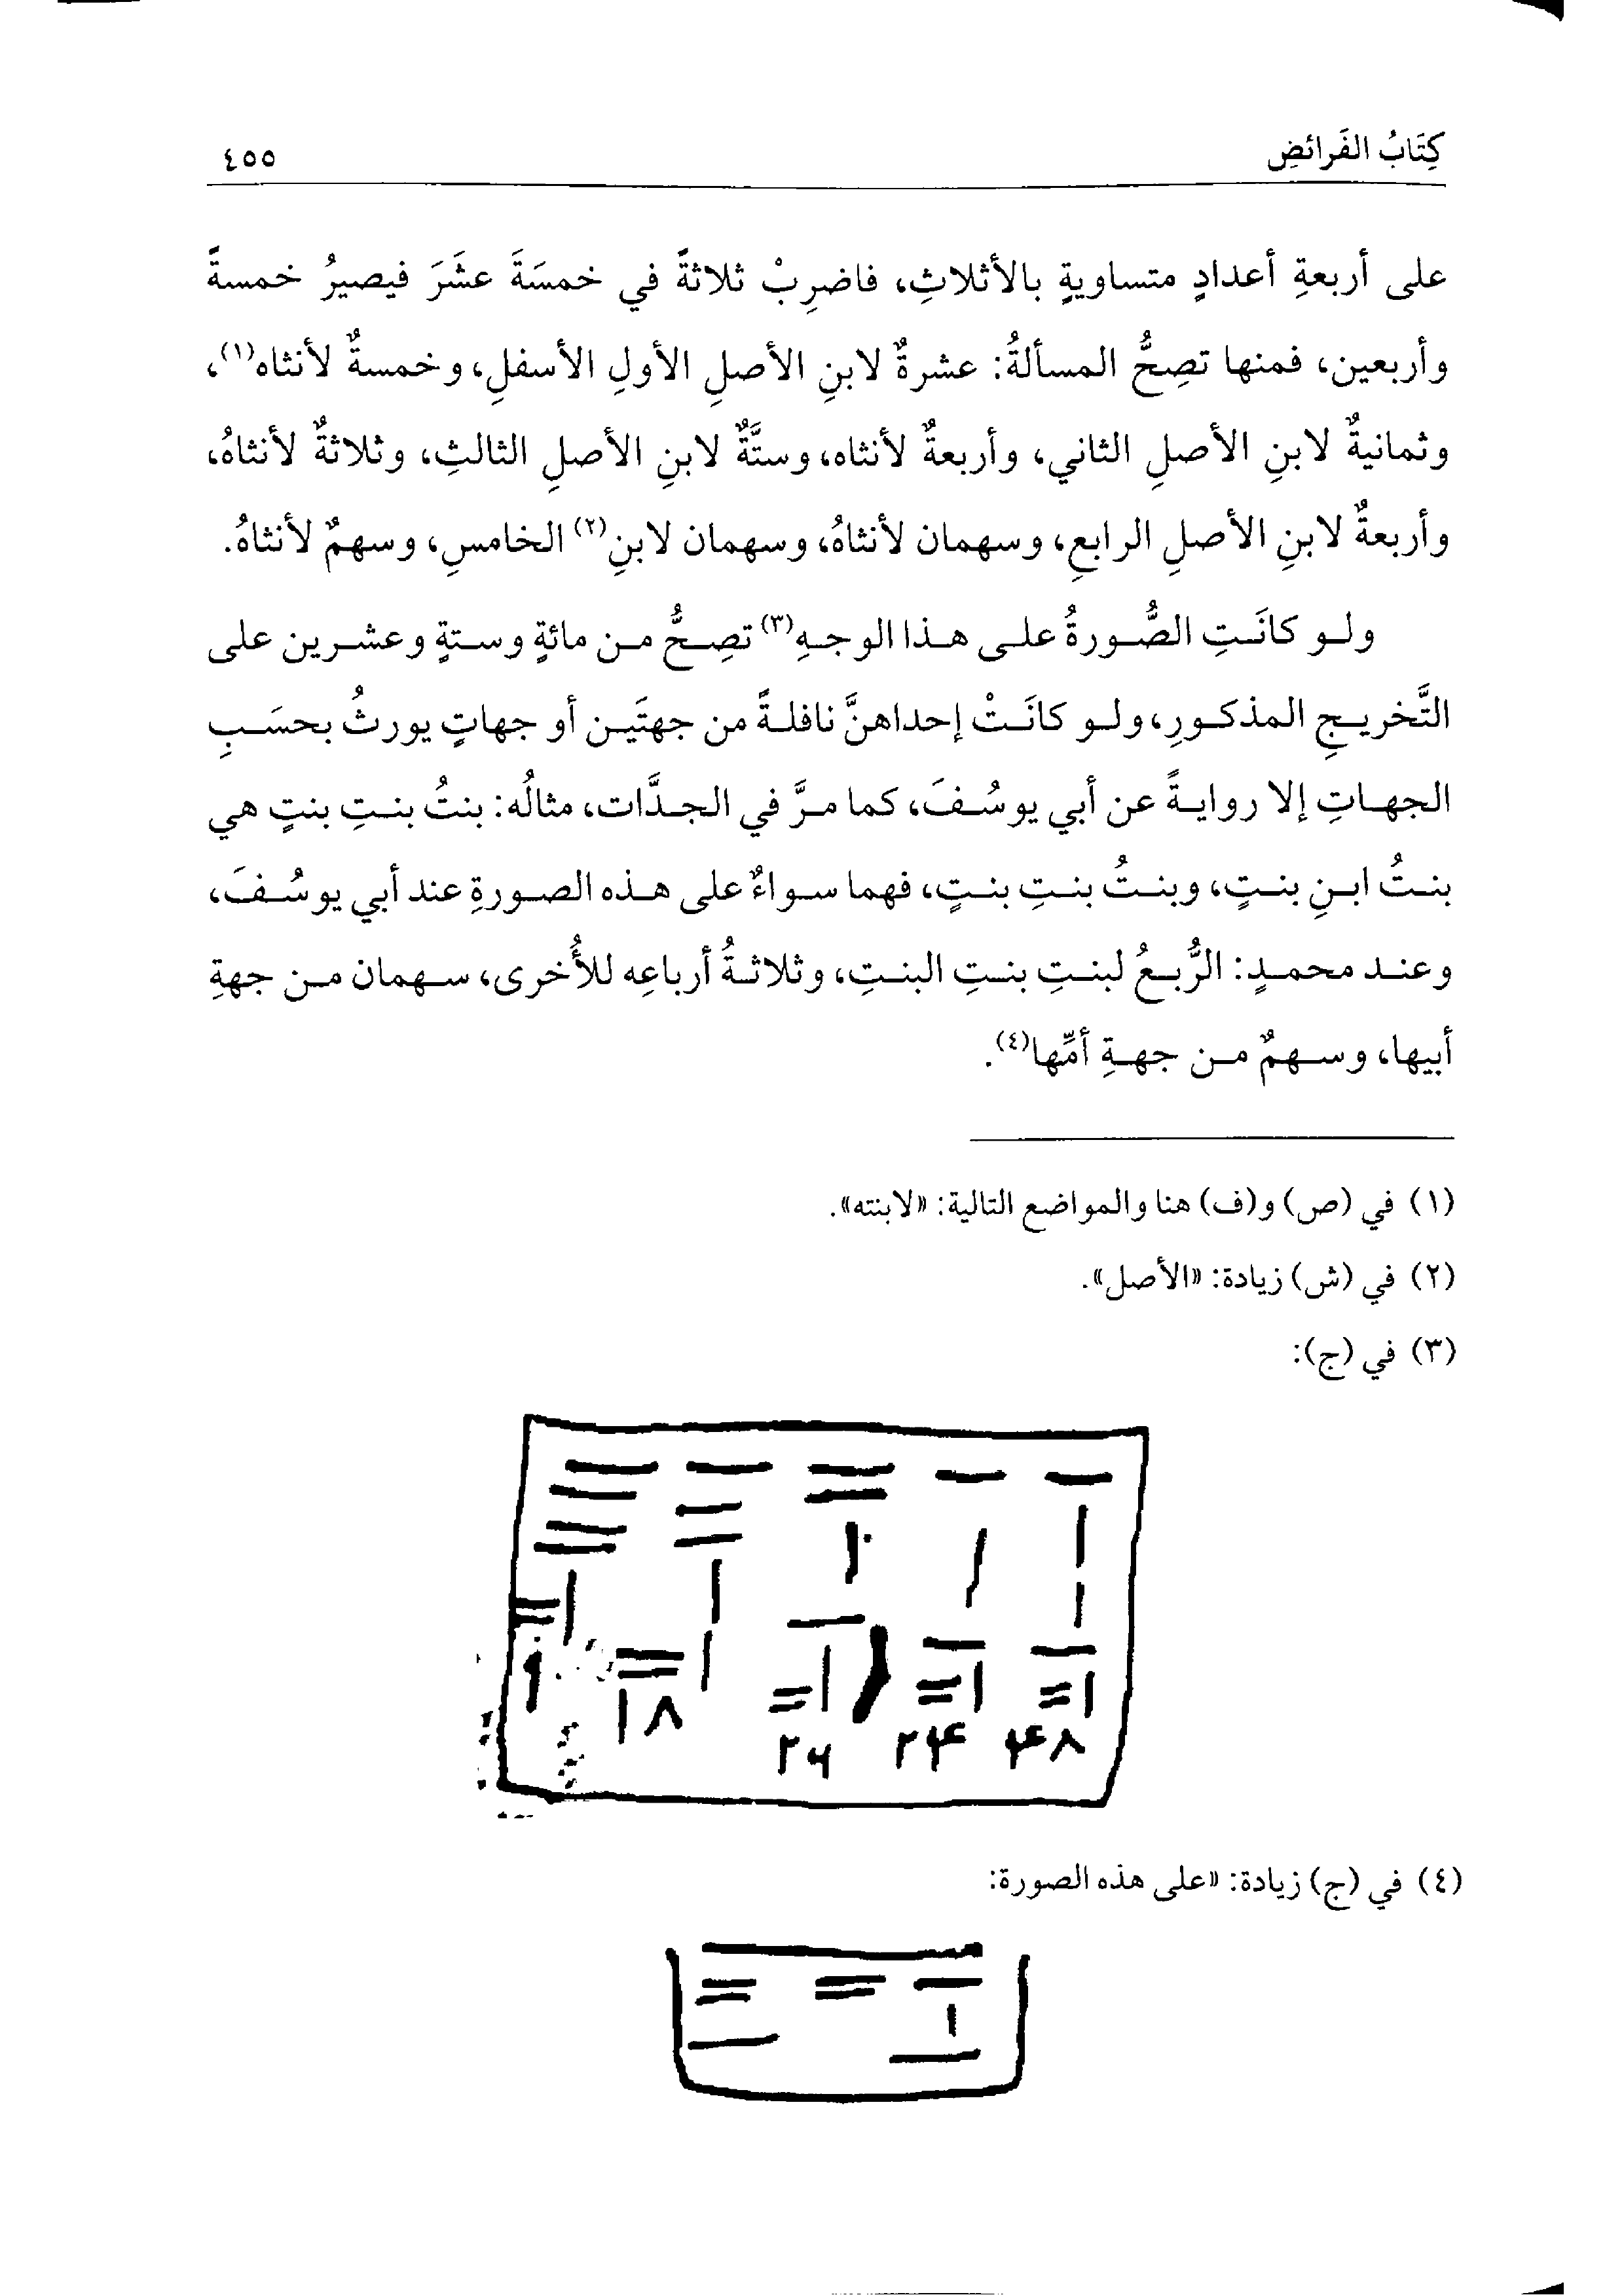 كِتَابُ الفَرائضِ
٤٥٥
على أربعةِ أعدادٍ متساويةٍ بالأثلاثِ، فاضرِبْ ثلاثةً في خمسَةَ عشَرَ فيصيرُ خمسةً
وأربعين، فمنها تصِحُّ المسألةُ: عشرةٌ لابنِ الأصلِ الأولِ الأسفلِ، وخمسةٌ لأنثاه(١)،
وثمانيةٌ لابنِ الأصلِ الثاني، وأربعةٌ لأنثاه، وستَّةٌ لابنِ الأصلِ الثالثِ، وثلاثةٌ لأنثاهُ،
وأربعةٌ لابنِ الأصلِ الرابعِ، وسهمان لأنثاهُ، وسهمان لابنِ(٢) الخامسِ، وسهمٌ لأنثاهُ.
ولو كانَتِ الصُّورةُ على هذا الوجهِ(٣) تصِحُّ من مائةٍ وستةٍ وعشرين على
التَّخريجِ المذكورِ، ولو كانَتْ إحداهنَّ نافلةً من جهتَين أو جهاتٍ يورثُ بحسَبِ
الجهاتِ إلا روايةً عن أبي يوسُفَ، كما مرَّ في الجدَّات، مثالُه: بنتُ بنتِ بنتٍ هي
بنتُ ابنِ بنتٍ، وبنتُ بنتِ بنتٍ، فهما سواءٌ على هذه الصورةِ عند أبي يوسُفَ،
وعند محمدٍ: الرُّبعُ لبنتِ بنتِ البنتِ، وثلاثةُ أرباعِه للأُخرى، سهمان من جهةِ
أبيها، وسهمٌ من جهةِ أمِّها(٤).
(١) في (ص) و(ف) هنا والمواضع التالية: «لابنته».
(٢) في (ش) زيادة: «الأصل».
(٣) في (ج):
۴۸ ۲۴ ۲۶ ۱۸
(٤) في (ج) زيادة: «على هذه الصورة: